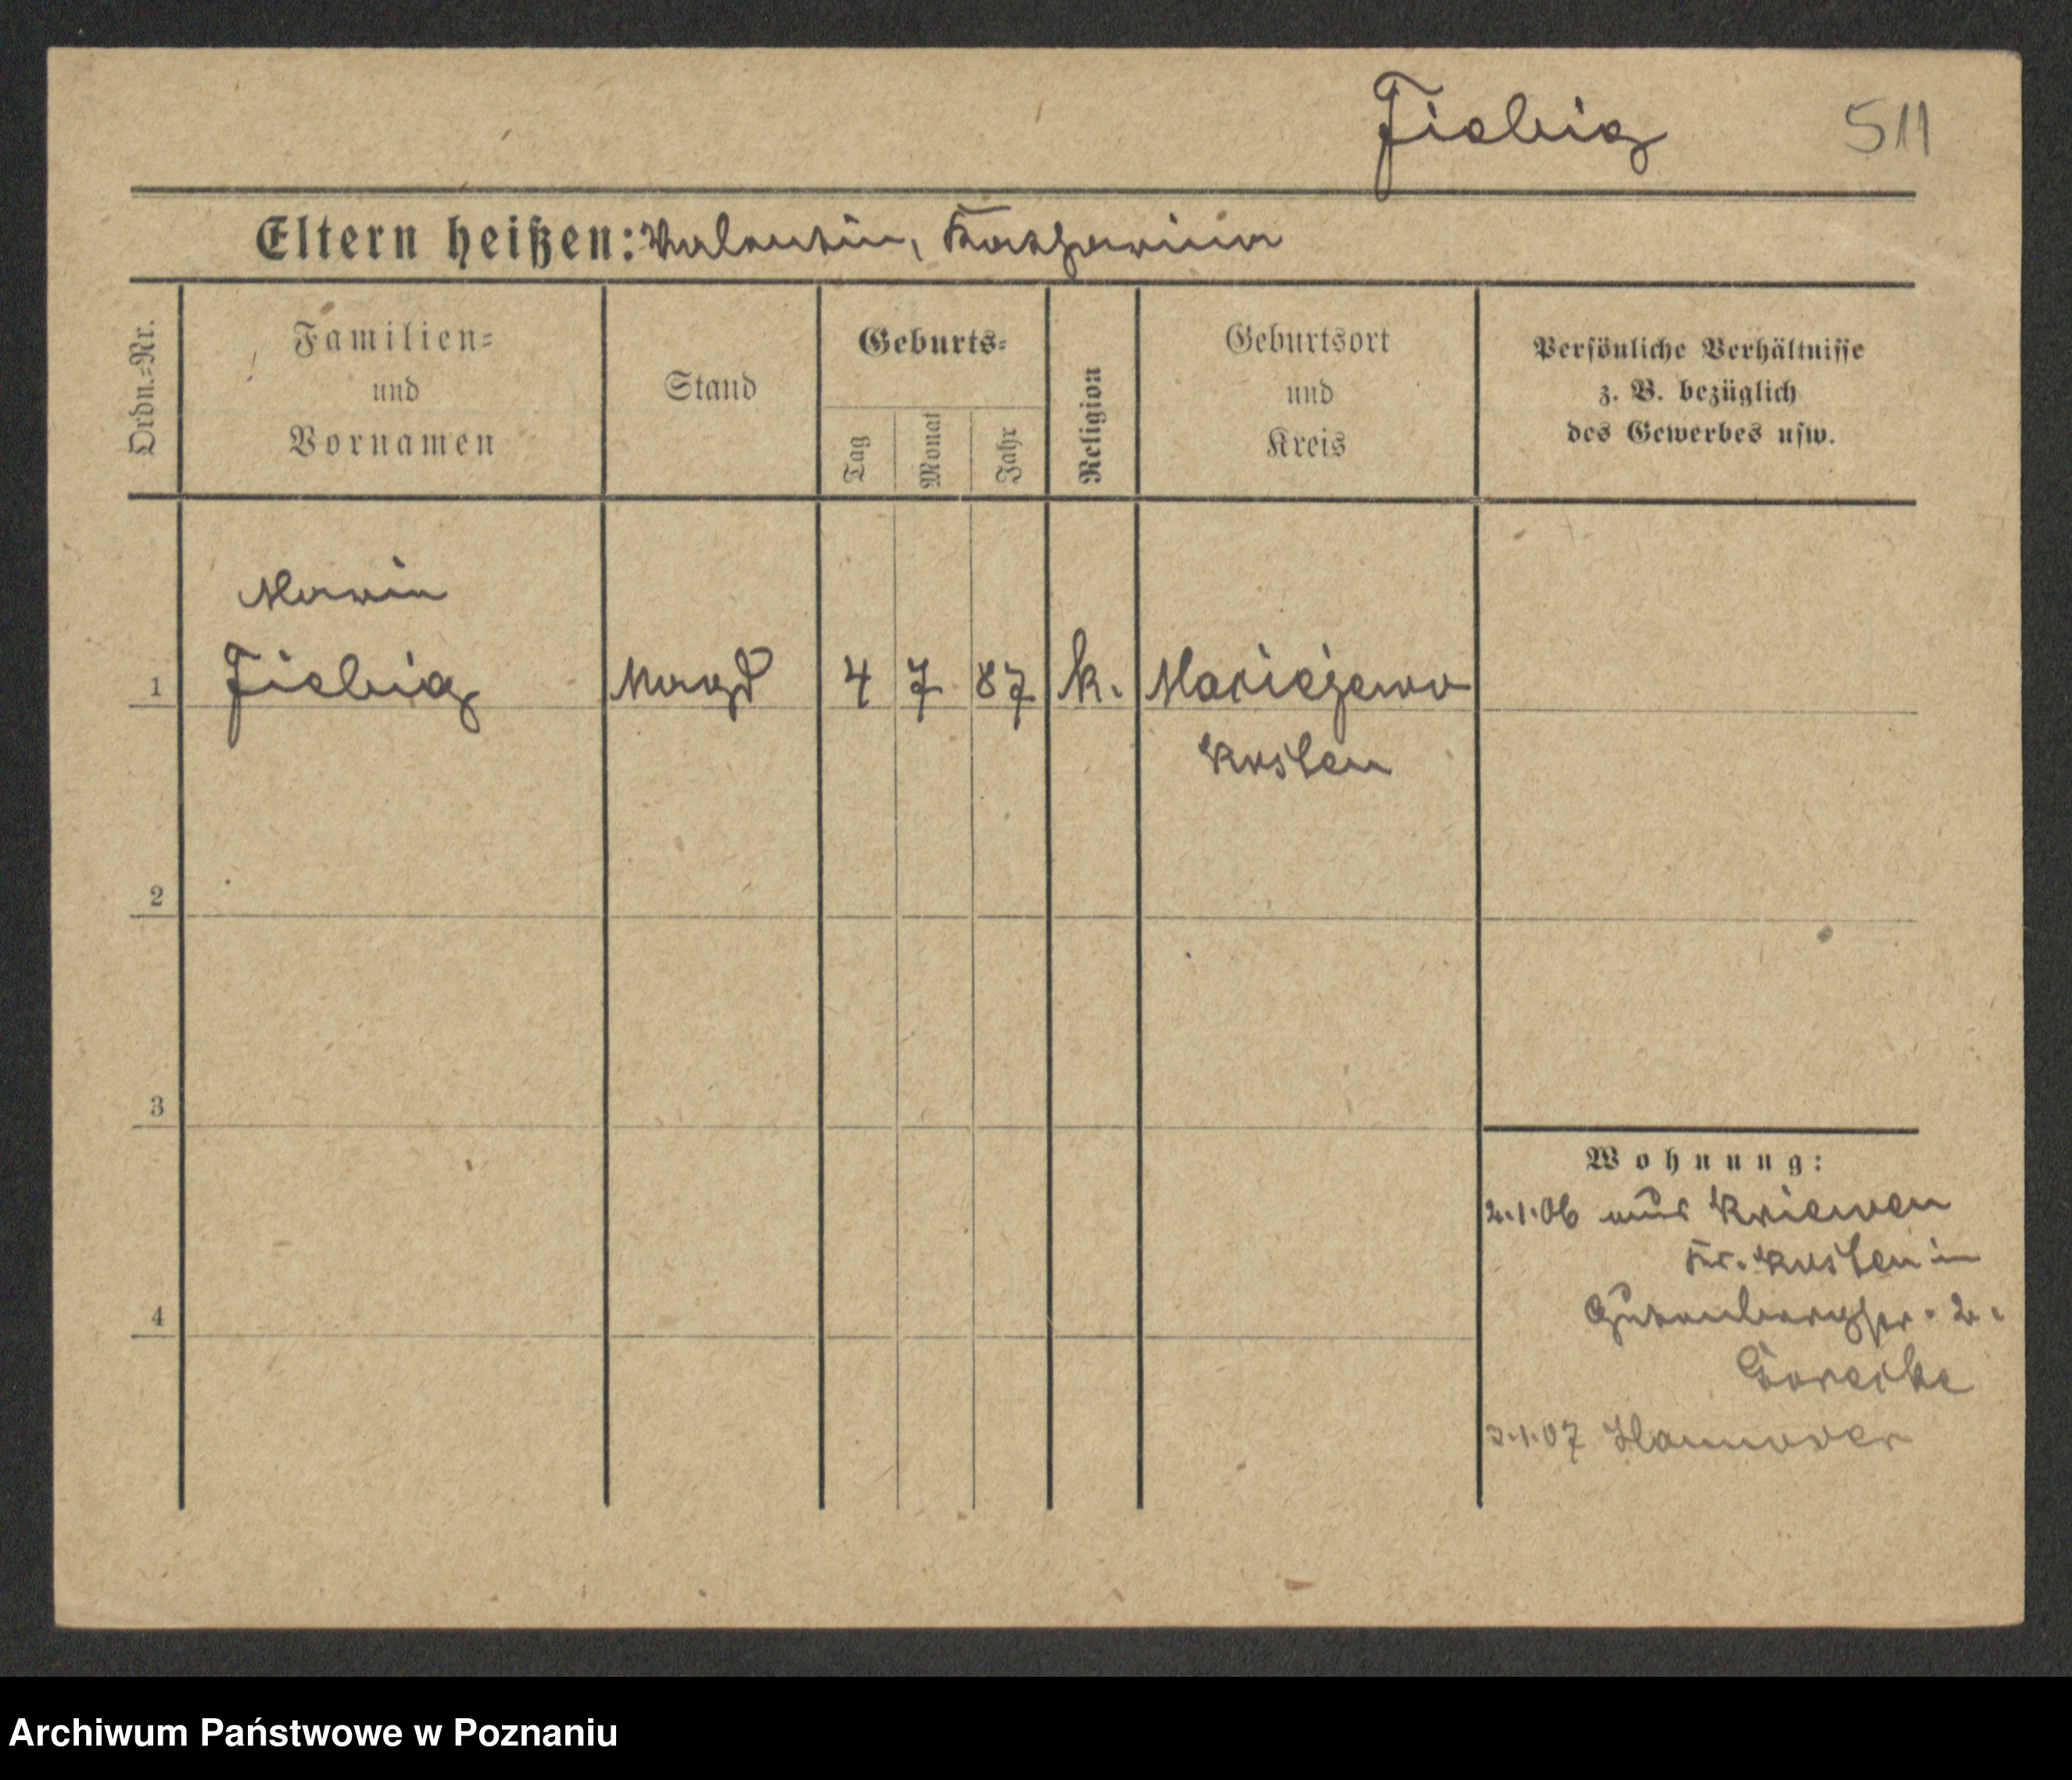 Fiebig 511
Eltern heißen: Valentin, Katharina
Ordn.=Nr.
Familien=
und
Vornamen
Stand
Geburts=
Tag
Monat
Jahr
Religion
Geburtsort
und
Kreis
Persönliche Verhältnisse
z. B. bezüglich
des Gewerbes usw.
Marie
1 Fiebig Magd 4 7 87 k.
Kosten
2
3
4
Wohnung:
2.1.06 aus Kriewen
Kr. Kosten in
Gutenbergstr. 2.
3.1.07 Hannover
Archiwum Państwowe w Poznaniu